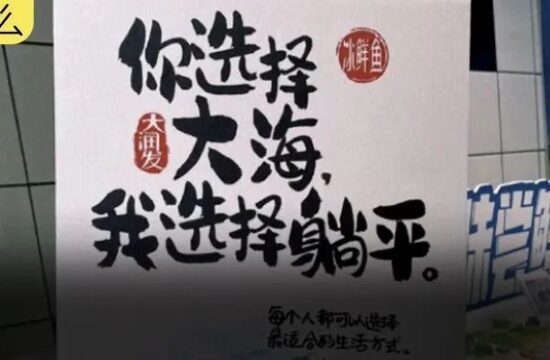 么
你选择
冰鲜鱼
大润发
大海,
我选择躺平。
每个人都可以选择
最适合的生活方式.